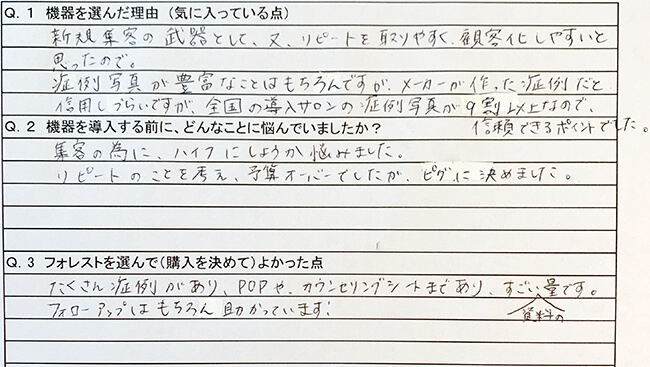 Q. 1 機器を選んだ理由（気に入っている点）
新規集客の武器として、又、リピートを取りやすく、顧客化しやすいと
思ったので。
症例写真が豊富なことはもちろんですが、メーカーが作った症例だと
信用しづらいですが、全国の導入サロンの症例写真が9割以上なので、
信頼できるポイントでした。
Q. 2 機器を導入する前に、どんなことに悩んでいましたか？
集客の為に、ハイフにしようか悩みました。
リピートのことを考え、予算オーバーでしたが、ピグに決めました。
Q. 3 フォレストを選んで（購入を決めて）よかった点
たくさん症例があり、POPや、カウンセリングシートまであり、すごい資料の量です。
フォローアップはもちろん助かっています!